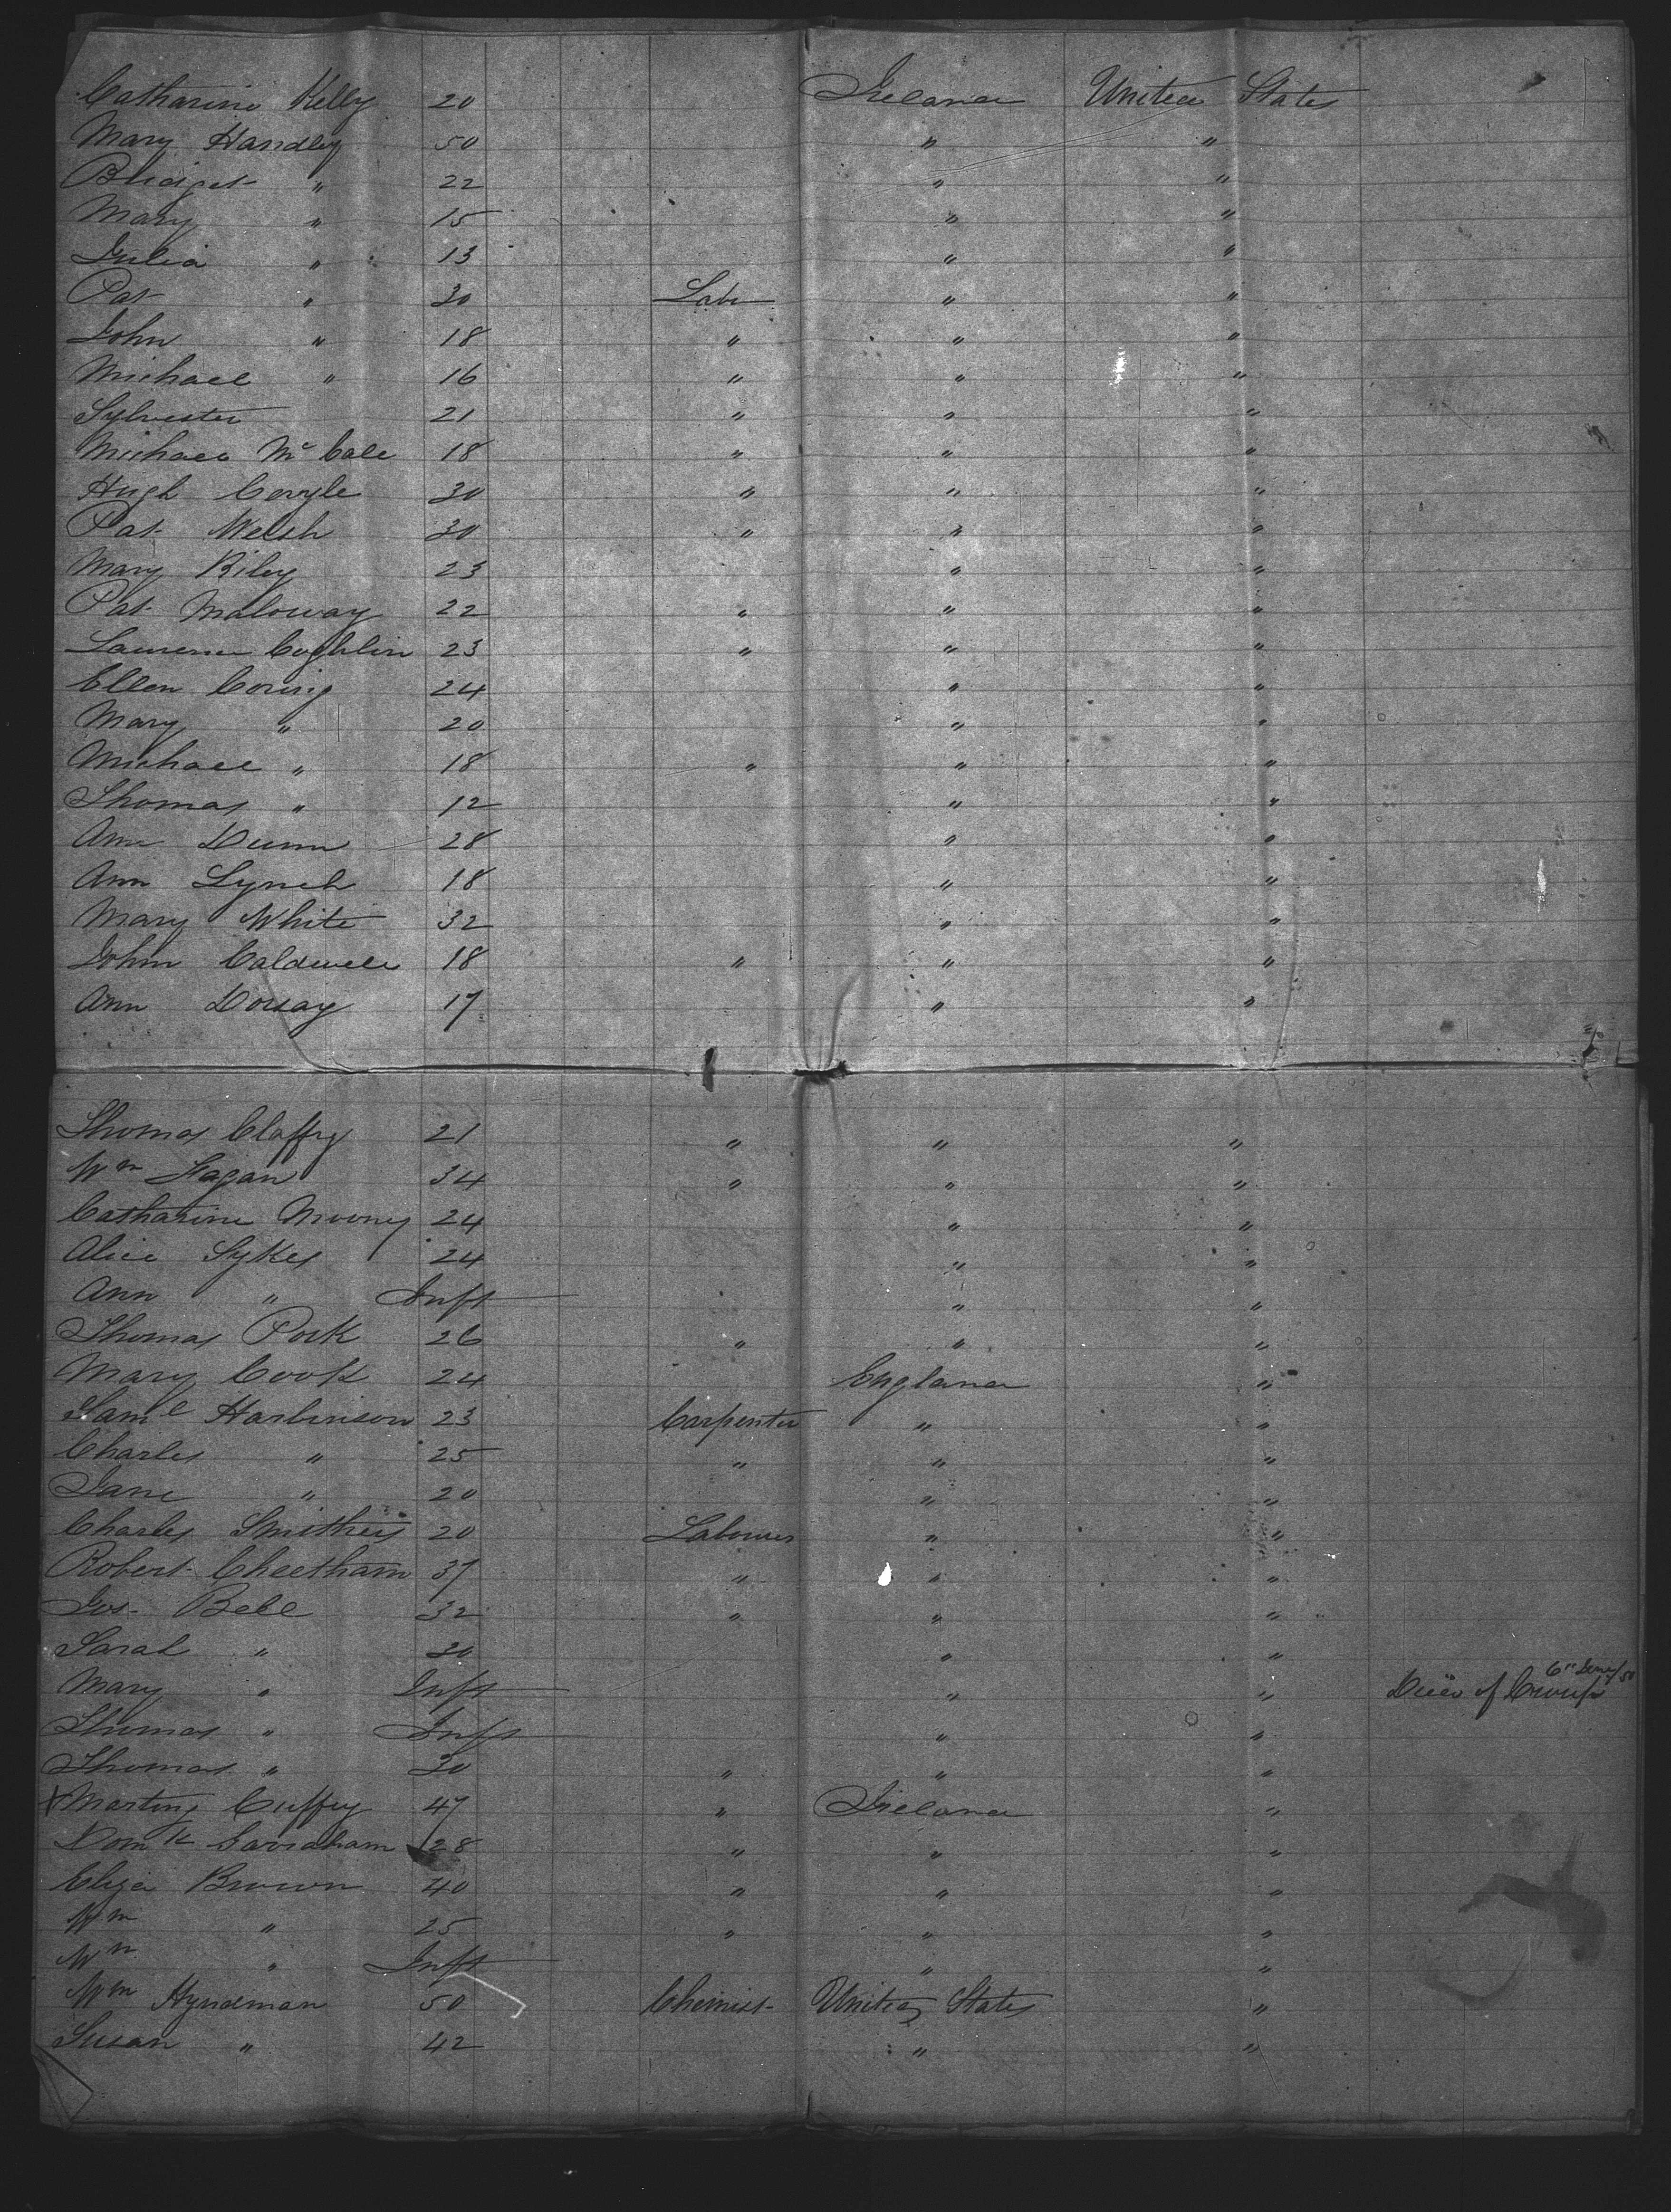 Catharine Kelly 20 Ireland United States
Mary Handley 50 " "
Bridget " 22 " "
Mary " 15 " "
Julia " 13 " "
Pat " 30 Labr " "
John " 18 " " "
Michael " 16 " " "
Sylvester 21 " " "
Michael Mc Cale 18 " " "
Hugh 30 " " "
Pat Welsh 30 " " "
Mary Riley 23 " "
Pat Maloway 22 " " "
Laurence Coghlin 23 " " "
Ellen 24 " "
Mary " 20 " "
Michael " 18 " " "
Thomas " 12 " "
Ann Dunn 28 " "
Ann Lynch 18 " "
Mary White 32 " "
John Caldwell 18 " " "
Ann Dorsay 17 " "
Thomas Claffry 21 " " "
Wm Hagan 34 " " "
Catharine Mooney 24 " "
Alice Sykes 24 " "
Ann " Inft " "
Thomas Pock 26 " " "
Mary Cook 24 England "
Saml Harbinson 23 Carpenter " "
Charles " 25 " " "
Jane " 20 " "
Charles Smithers 20 Labourer " "
Robert Cheetham 37 " " "
Jos. Bell 32 " " "
Sarah " 30 " "
Mary " Inft " " Died of Croup 6th
Thomas " Inft " "
Thomas " 30 " " "
X Martin Cuffey 47 " Ireland "
Domk 28 " " "
Eliza Brown 40 " " "
Wm " 25 " " "
Wm " Inft " "
Wm Hyndman 50 Chemist United States "
Susan " 42 " "